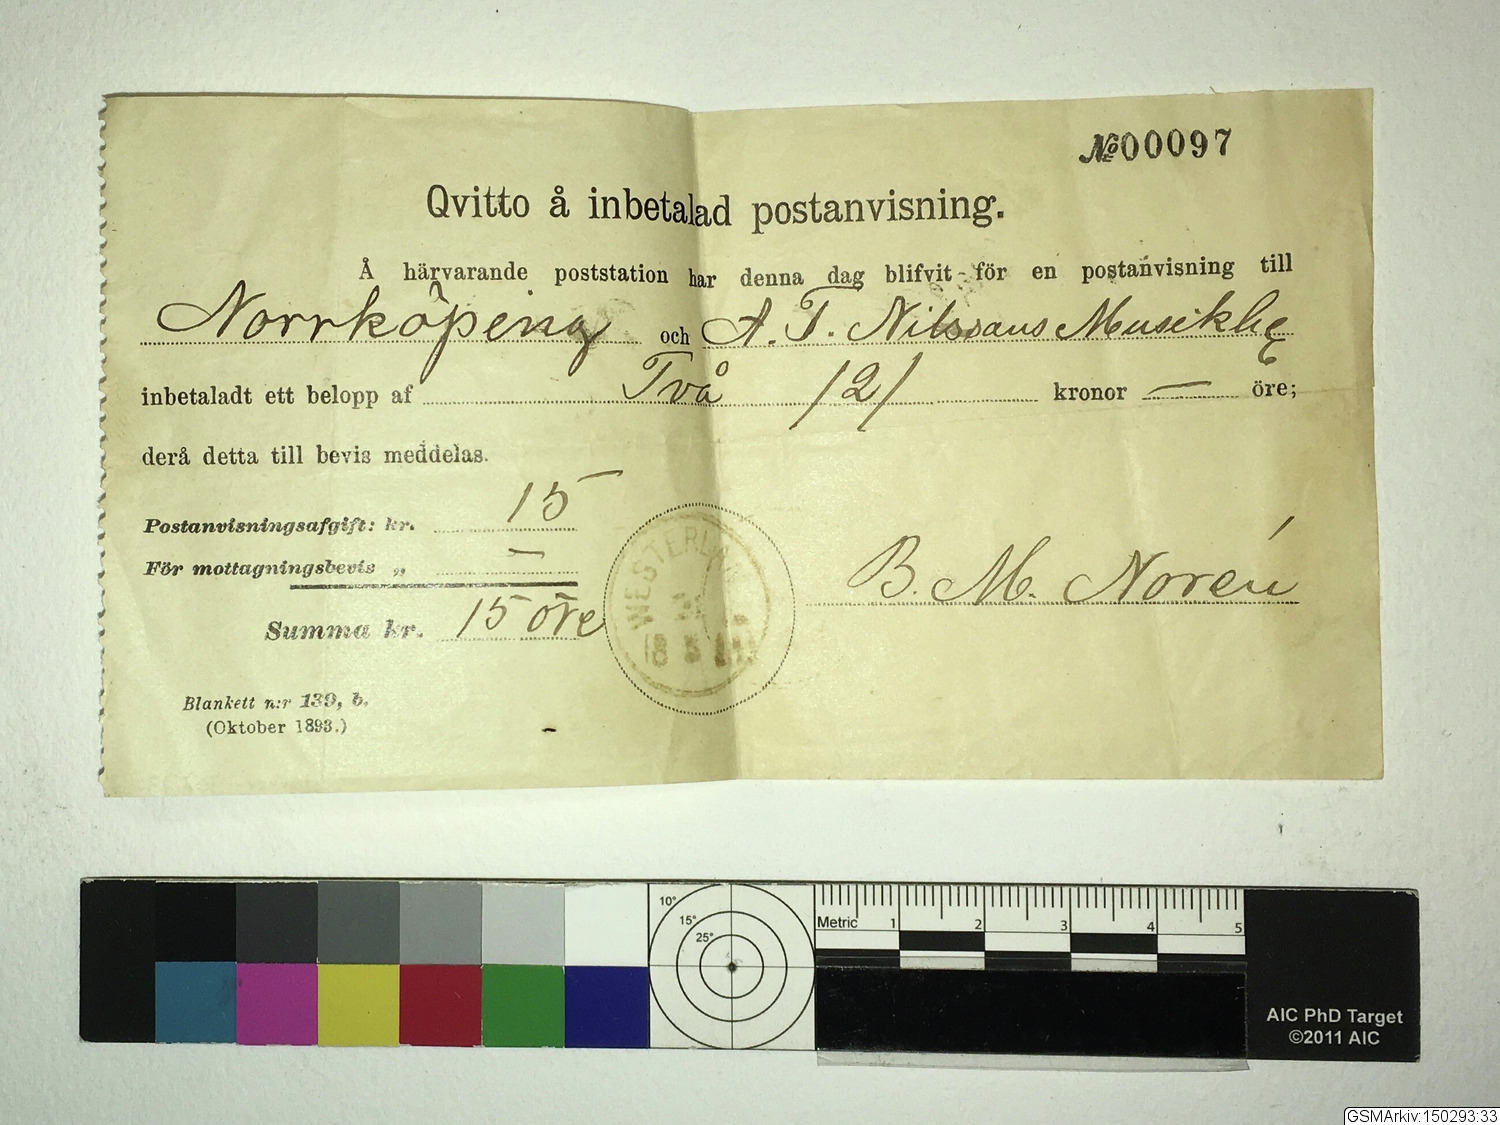 №00097
Qvitto å inbetalad postanvisning.
Å härvarande poststation har denna dag blifvit för en postanvisning till
Norrköping och A. T. Nilssons Musikhg
inbetaladt ett belopp af Två /2/ kronor — öre;
derå detta till bevis meddelas.
Postanvisningsafgift: kr. 15
För mottagningsbevis „ —
Summa kr. 15 öre
B. M. Norén
Blankett n:r 139, b.
(Oktober 1893.)
10°
15°
25°
Metric 1 2 3 4 5
AIC PhD Target
©2011 AIC
GSMArkiv:150293:33